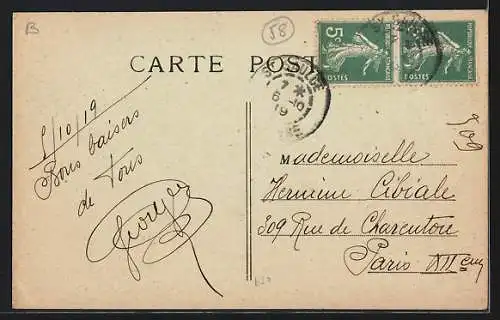 B
58
CARTE POSTALE
5c
POSTES
POSTES
7 *
6-10
19
5/10/19
Bons baisers
de Tous
Mademoiselle
Hermine Cibiale
309 Rue de Charenton
Paris XIIème